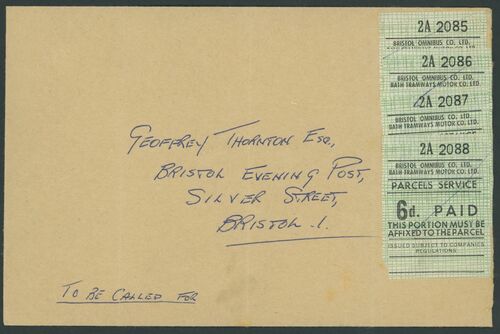 2A 2085
BRISTOL OMNIBUS CO. LTD.
2A 2086
BRISTOL OMNIBUS CO. LTD.
BATH TRAMWAYS MOTOR CO. LTD.
2A 2087
BRISTOL OMNIBUS CO. LTD.
BATH TRAMWAYS MOTOR CO. LTD.
2A 2088
BRISTOL OMNIBUS CO. LTD.
BATH TRAMWAYS MOTOR CO. LTD.
PARCELS SERVICE
6d. PAID
THIS PORTION MUST BE
AFFIXED TO THE PARCEL
ISSUED SUBJECT TO COMPANIES
REGULATIONS
GEOFFREY THORNTON ESQ.,
BRISTOL EVENING POST,
SILVER STREET,
BRISTOL .1.
TO BE CALLED FOR